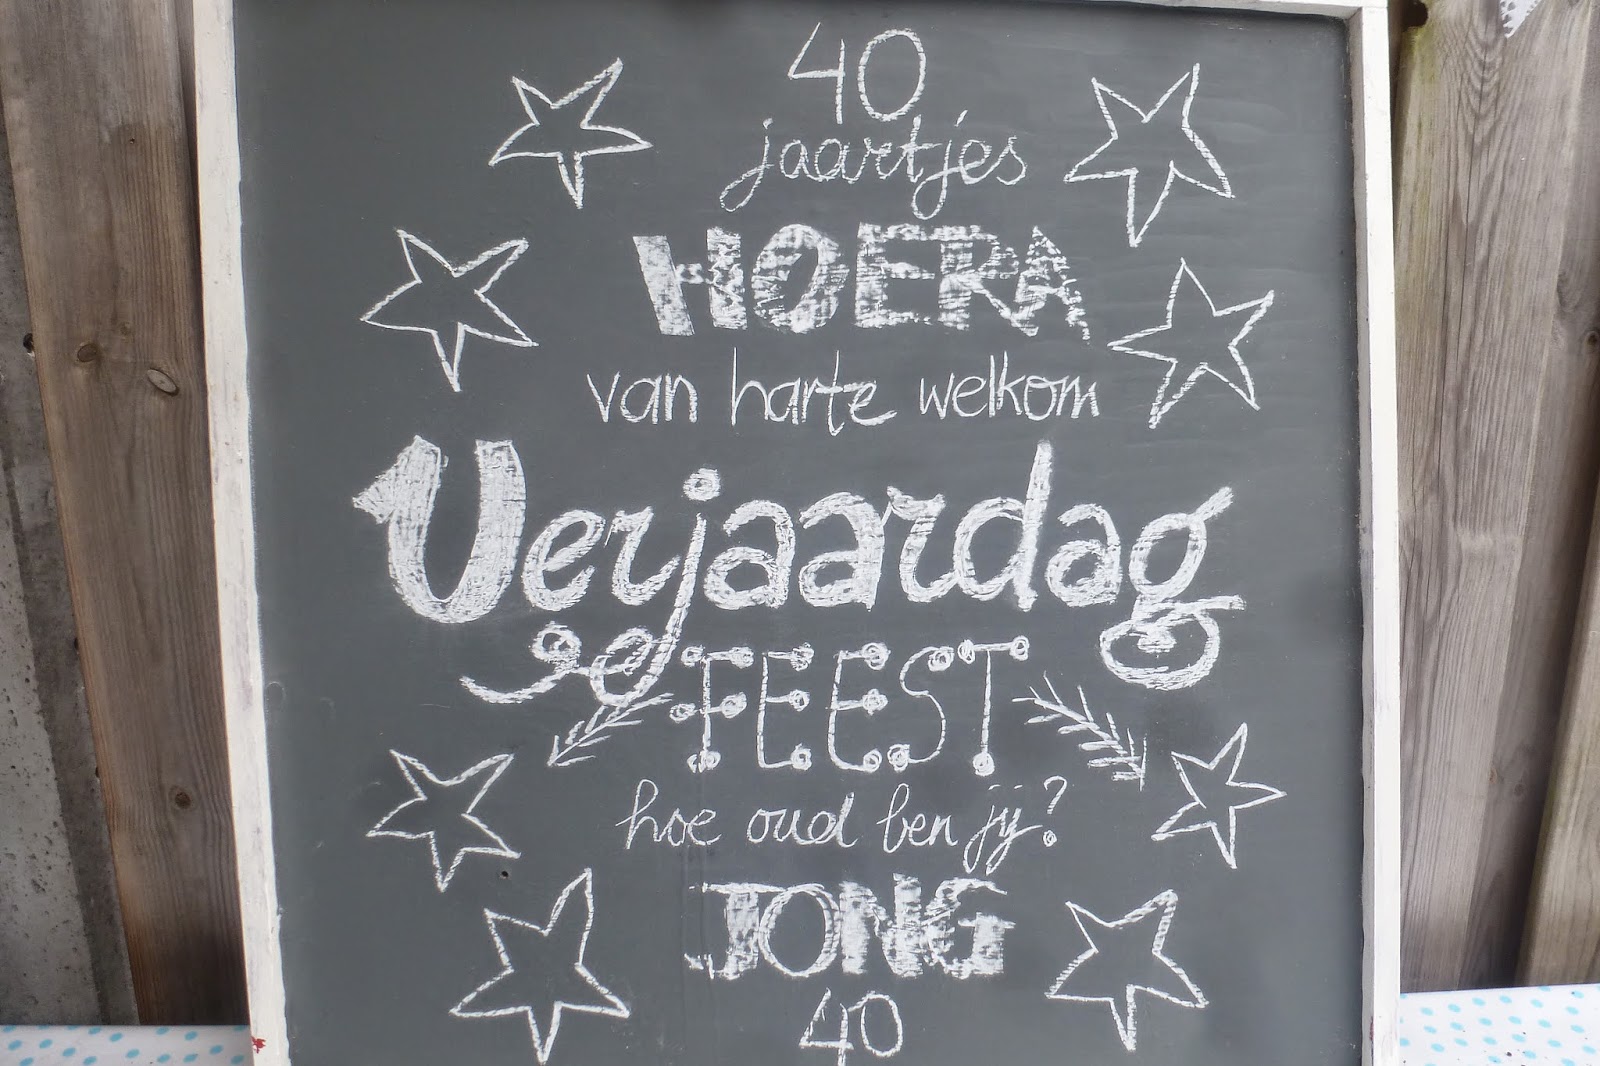 40
jaartjes
HOERA
van harte welkom
Verjaardag
FEEST
hoe oud ben jij?
JONG
40